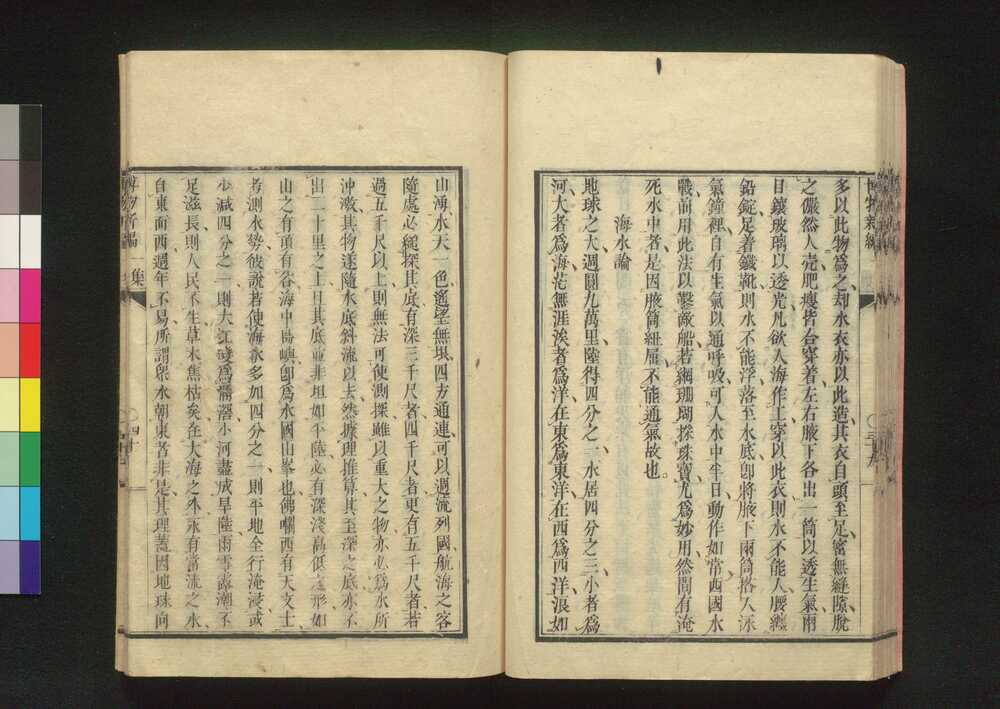 多以此物爲之却水衣亦以此造其衣自頭至足密無縫隙脫
之儼然人壳肥瘦皆合穿着左右腋下各出一筒以透生氣兩
目鑲玻璃以透光凡欲入海作工穿以此衣則水不能入腰纏
鉛錠足着鐵靴則水不能浮落至水底卽將腋下兩筒格入泳
氣鐘裡自有生氣以通呼吸可入水中半日動作如常西國水
戰前用此法以鑿敵船若網珊瑚探珠寶尤爲妙用然間有淹
死水中者是因腋筒紐屈不能通氣故也
海水論
地球之大週圍九萬里陸得四分之一水居四分之三小者爲
河大者爲海茫無涯涘者爲洋在東爲東洋在西爲西洋浪如
博物新編
山湧水天一色遙望無垠四方通連可以週流列國航海之客
隨處必縋探其底有深三千尺者四千尺者更有五千尺者若
過五千尺以上則無法可使測探雖以重大之物亦必爲水所
沖激其物遂隨水底斜流以去然據理推算其至深之底亦不
出二十里之上且其底並非坦如平陸必有深淺高低之形如
山之有頂有谷海中島嶼卽爲水國山峯也佛囒西有天文士
考測水勢彼說若使海水多如四分之一則平地全行淹浸或
少減四分之一則大江變爲溝潛小河盡成旱陸雨雪露潮不
足滋長則人民不生草木焦枯矣在大海之外永有常流之水
自東而西週年不易所謂衆水朝東者非是其理蓋因地球向
博物新編 一集